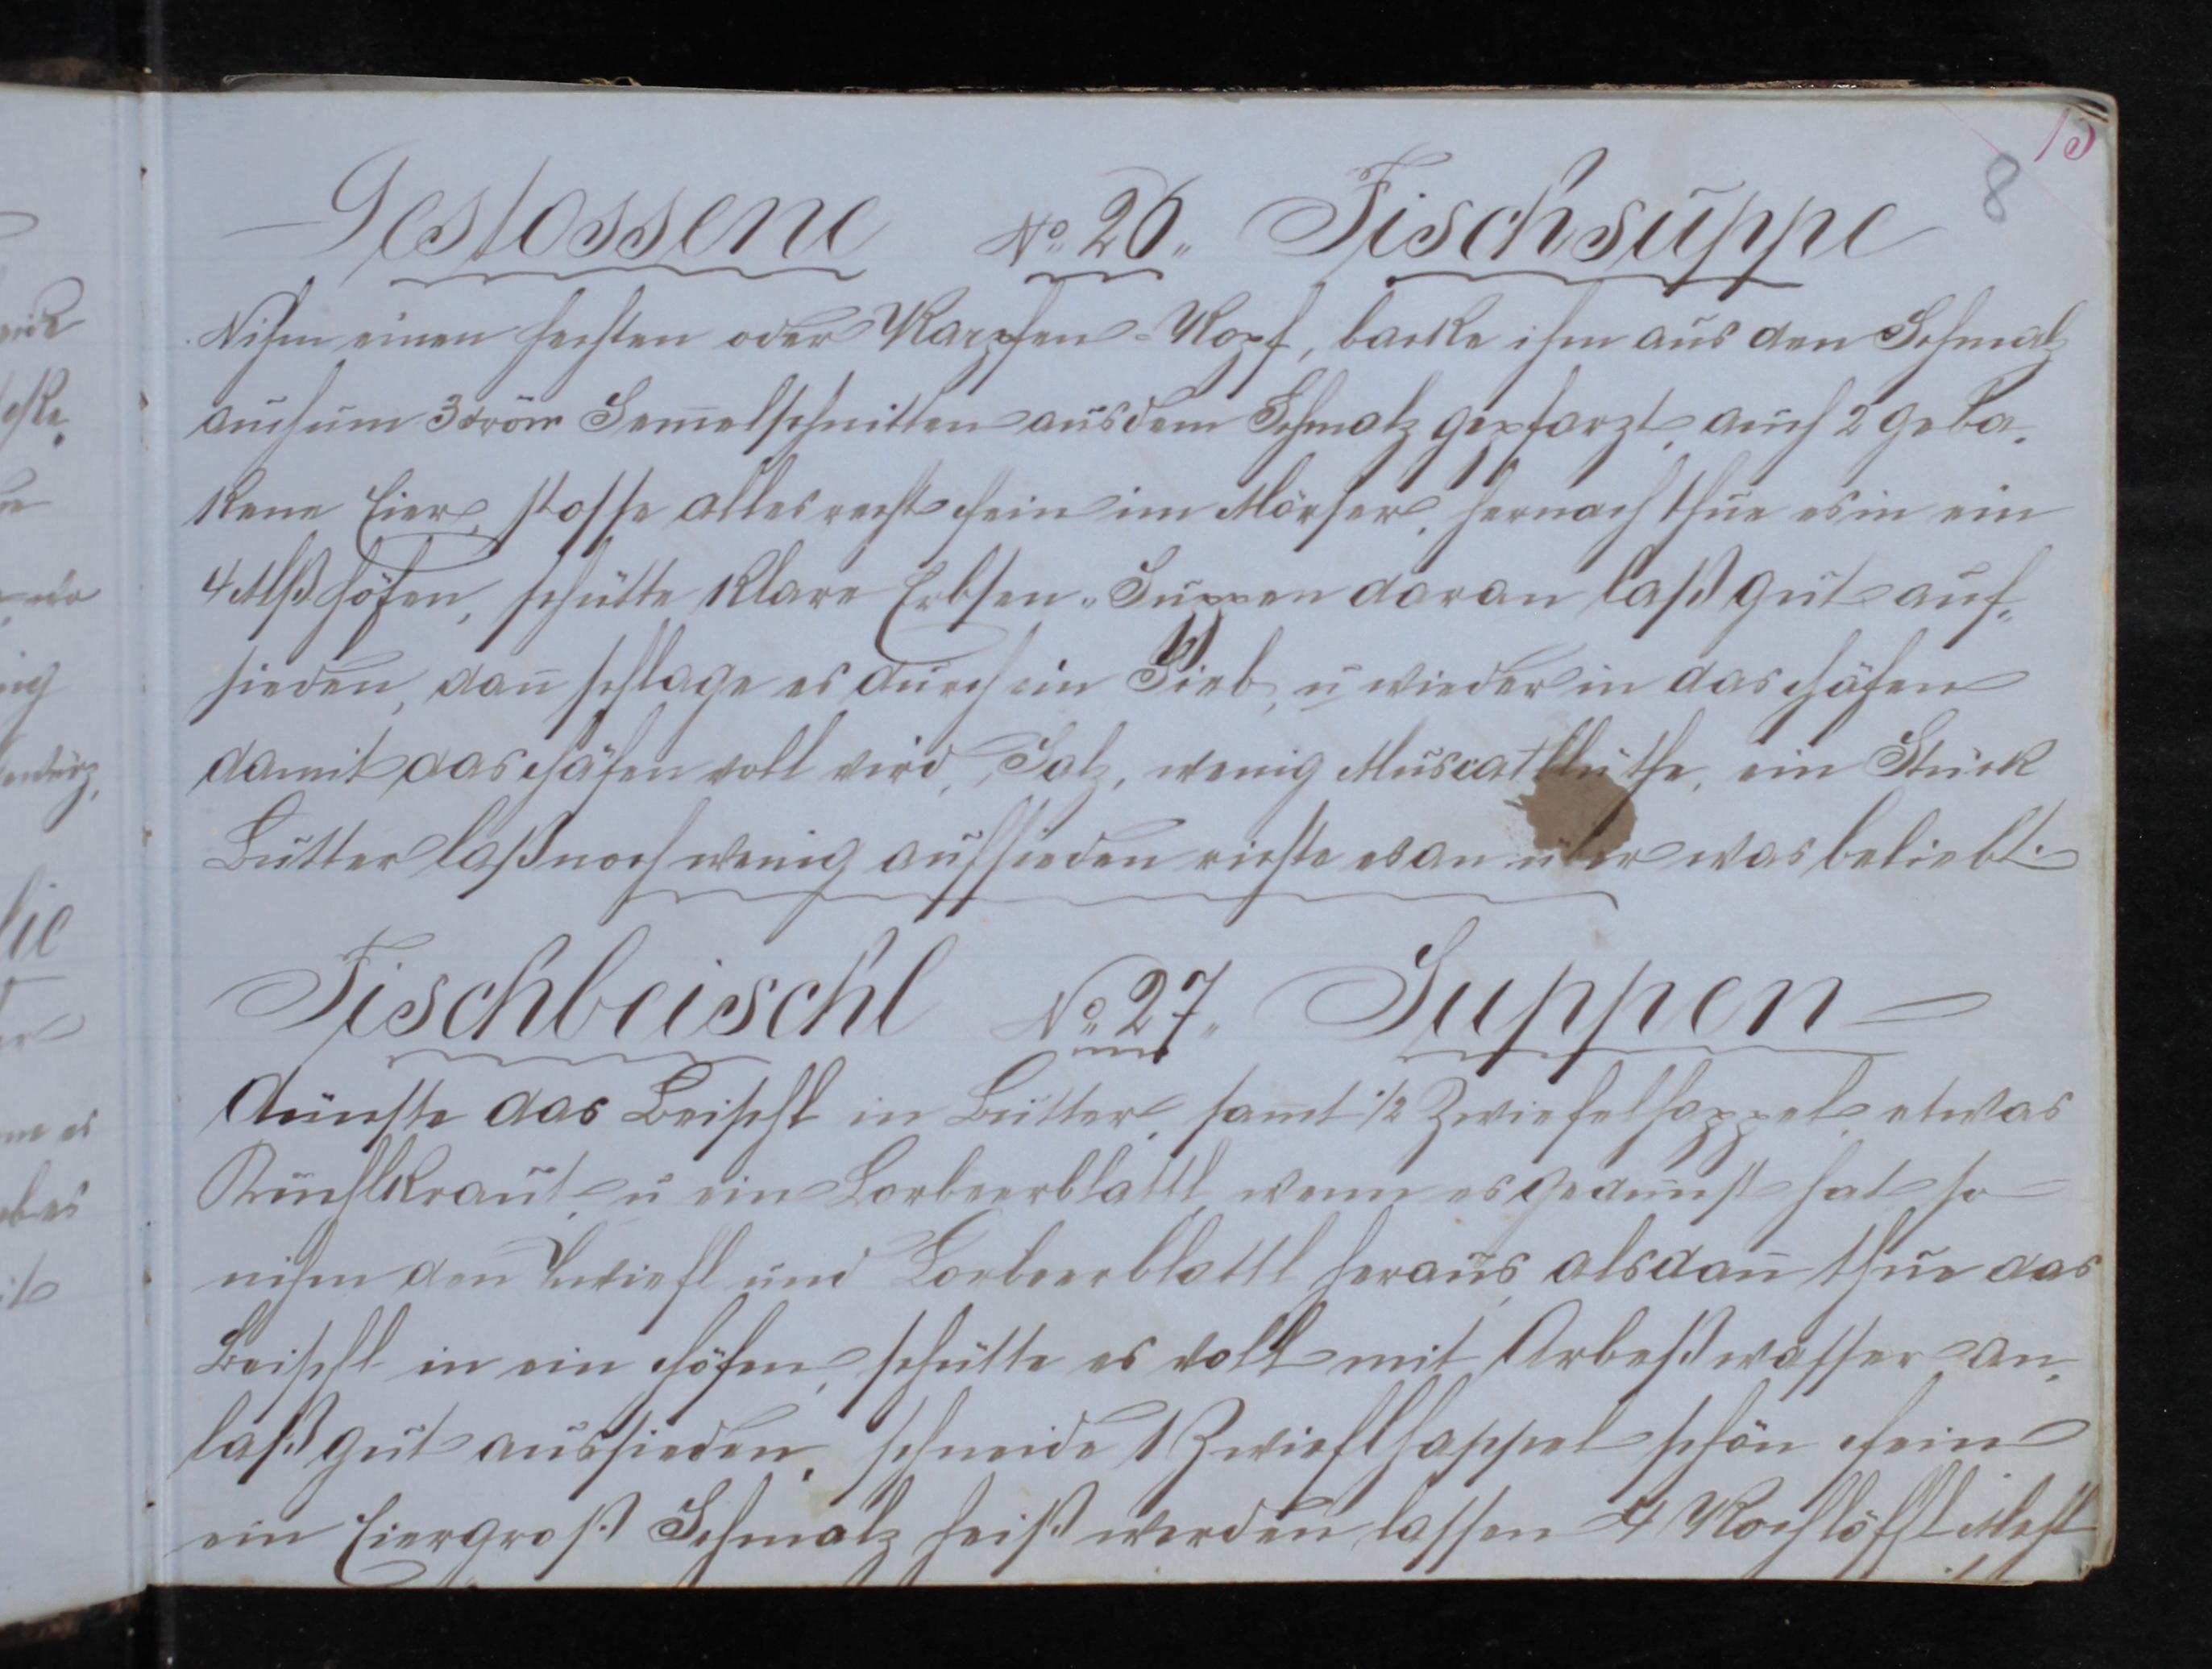 15
8
Gestossene No. 26. Fischsuppe
Nihm einen Hechten oder Karpfen-Kopf, backe ihm aus den Schmalz
auch um 3 Semmelschnitten aus dem Schmalz gepfarzt, auch 2 geba-
kene Eier, stosse alles recht fein im Mörser, hernach thue es in ein
4 Mß Höfen, schütte klare Erbsen-Suppen daran laß gut auf-
sieden, dan̄ schlage es durch ein Sieb, u wieder in das Häfen
damit das Häfen voll wird, Salz, wenig Muscatblüthe, ein Stück
Butter laß noch wenig aufsieden richte es an über was beliebt.
Fischbeischl No. 27. Suppen
Dünste das Beischl in Butter, samt 1/2 Zwiefelhappel, etwas
Kuchlkraut, u ein Lorbeerblattl, wenn es gedünst hat so
nihm den Zwiefl und Lorbeerblattl heraus, alsdan̄ thue das
Beischl in ein Höfen, schütte es voll mit Arbeßwasser an,
laß gut aussieden, schneide 1 Zwieflhappel schön fein
ein Eiergroß Schmalz heiß werden lassen 4 Kochlöffl Mehl